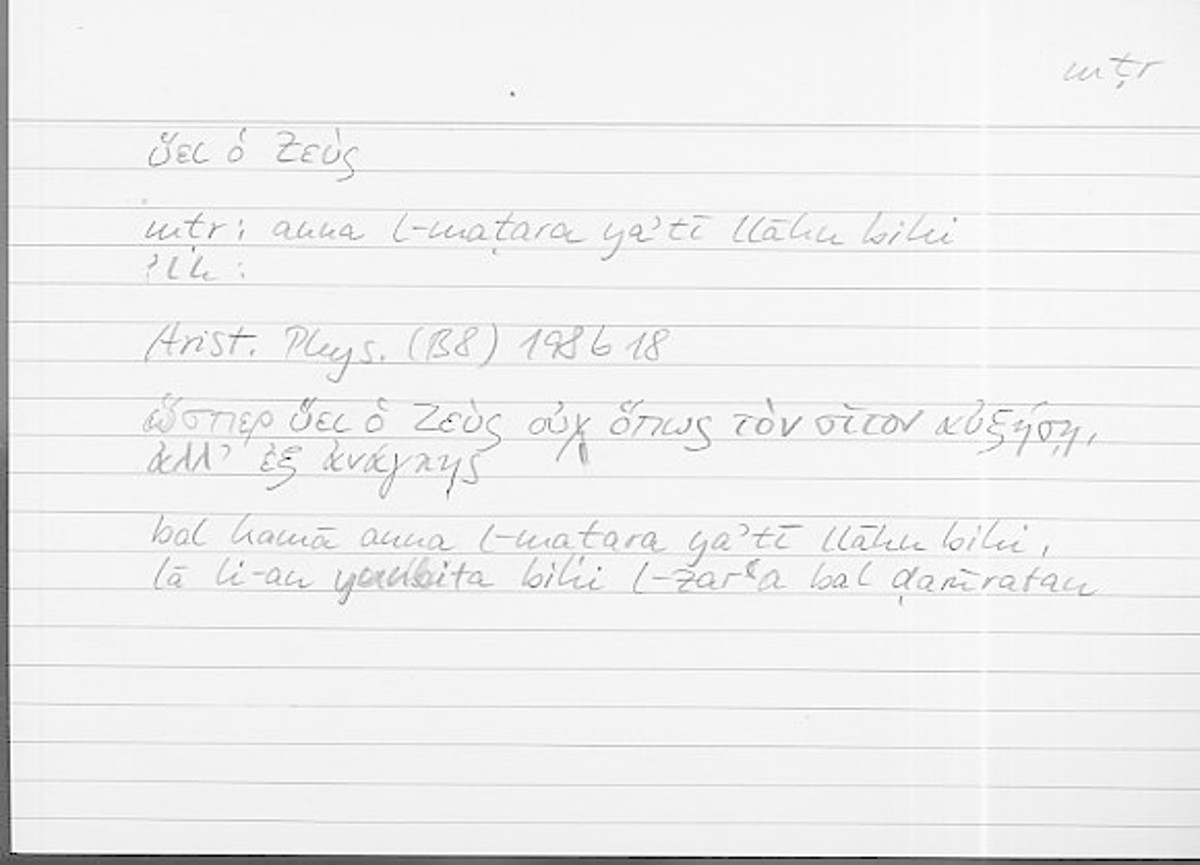 mṭr
ὕει ὁ Ζεὺς
mtr: anna l-maṭara yaʾtī llāhu bihi
ʾlh:
Arist. Phys. (B8) 198b18
ὥσπερ ὕει ὁ Ζεὺς οὐχ ὅπως τὸν σῖτον αὐξήσῃ,
ἀλλ’ ἐξ ἀνάγκης
bal kamā anna l-matara yaʾtī llāhu bihi,
lā li-an yunbita bihi l-zarʿa bal ḍarūratan